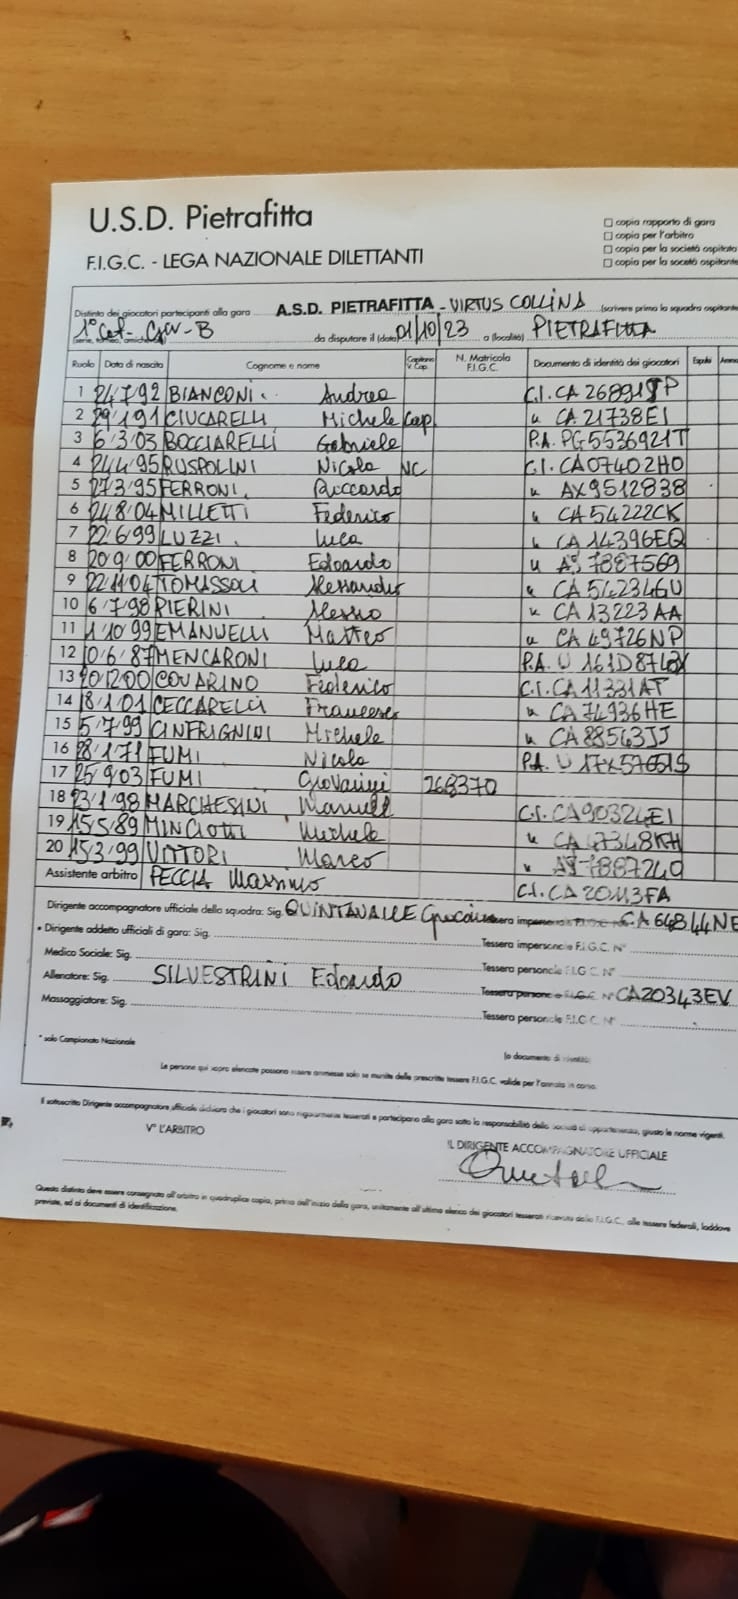 U.S.D. Pietrafitta
F.I.G.C. - LEGA NAZIONALE DILETTANTI
copia rapporto di gara
copia per l'arbitro
copia per la società ospitata
copia per la società ospitante
Distinta dei giocatori partecipanti alla gara A.S.D. PIETRAFITTA - VIRTUS COLLINA (scrivere prima la squadra ospitante
1° Cat. Gir. B da disputare il (data) 01/10/23 a (località) PIETRAFITTA
Ruolo Data di nascita Cognome e nome Capitano V. Cap. N. Matricola F.I.G.C. Documento di identità dei giocatori Espulsi
1 24/7/92 BIANCONI Andrea C.I. CA 26891
2 CIUCARELLI Michele Cap " CA 21738EI
3 6/3/03 BOCCIARELLI Gabriele P.A. PG5536921T
4 24/4/95 RUSPOLINI Nicola VC C.I. CA07402HO
5 27/3/95 FERRONI Riccardo " AX9512838
6 24/8/04 MILLETTI Federico " CA 54222CK
7 22/6/99 LUZZI Luca " CA 14396EQ
8 20/9/00 FERRONI Edoardo " 7887569
9 22/11/04 TOMASSOLI Alessandro " CA 54234GU
10 6/7/98 PIERINI Alessio " CA 13223AA
11 1/10/99 EMANUELLI Matteo " CA 49726NP
12 10/6/87 MENCARONI Luca P.A.
13 COVARINO Federico C.I. CA 11331AT
14 18/1/01 CECCARELLI Francesco " CA 74936HE
15 5/7/99 CINFRIGNINI Michele " CA 88543JJ
16 28/1/71 FUMI Nicola P.A.
17 25/9/03 FUMI Giovanni 268370
18 23/1/98 MARCHESINI Manuel C.I. CA90324EI
19 15/5/89 MINCIOTTI Michele " CA 47348KH
20 15/3/99 VITTORI Marco " 7887240
Assistente arbitro PECCIA Massimo C.I. CA 20113FA
Dirigente accompagnatore ufficiale della squadra: Sig. QUINTAVALLE Tessera impersonale F.I.G.C. N° CA 64844NE
• Dirigente addetto ufficiali di gara: Sig. Tessera impersonale F.I.G.C. N°
Medico Sociale: Sig. Tessera personale F.I.G.C. N°
Allenatore: Sig. SILVESTRINI Edoardo Tessera personale F.I.G.C. N° CA20343EV
Massaggiatore: Sig. Tessera personale F.I.G.C. N°
* solo Campionato Nazionale
(o documento di identità)
Le persone qui sopra elencate possono essere ammesse solo se munite delle prescritte tessere F.I.G.C. valide per l'annata in corso.
Il sottoscritto Dirigente accompagnatore ufficiale dichiara che i giocatori sono regolarmente tesserati e partecipano alla gara sotto la responsabilità della società di appartenenza, giusto le norme vigenti.
V° L'ARBITRO
IL DIRIGENTE ACCOMPAGNATORE UFFICIALE
Questa distinta deve essere consegnata all'arbitro in quadruplice copia, prima dell'inizio della gara, unitamente all'ultimo elenco dei giocatori tesserati ricevuto dalla F.I.G.C., alle tessere federali, laddove
previste, ed ai documenti di identificazione.